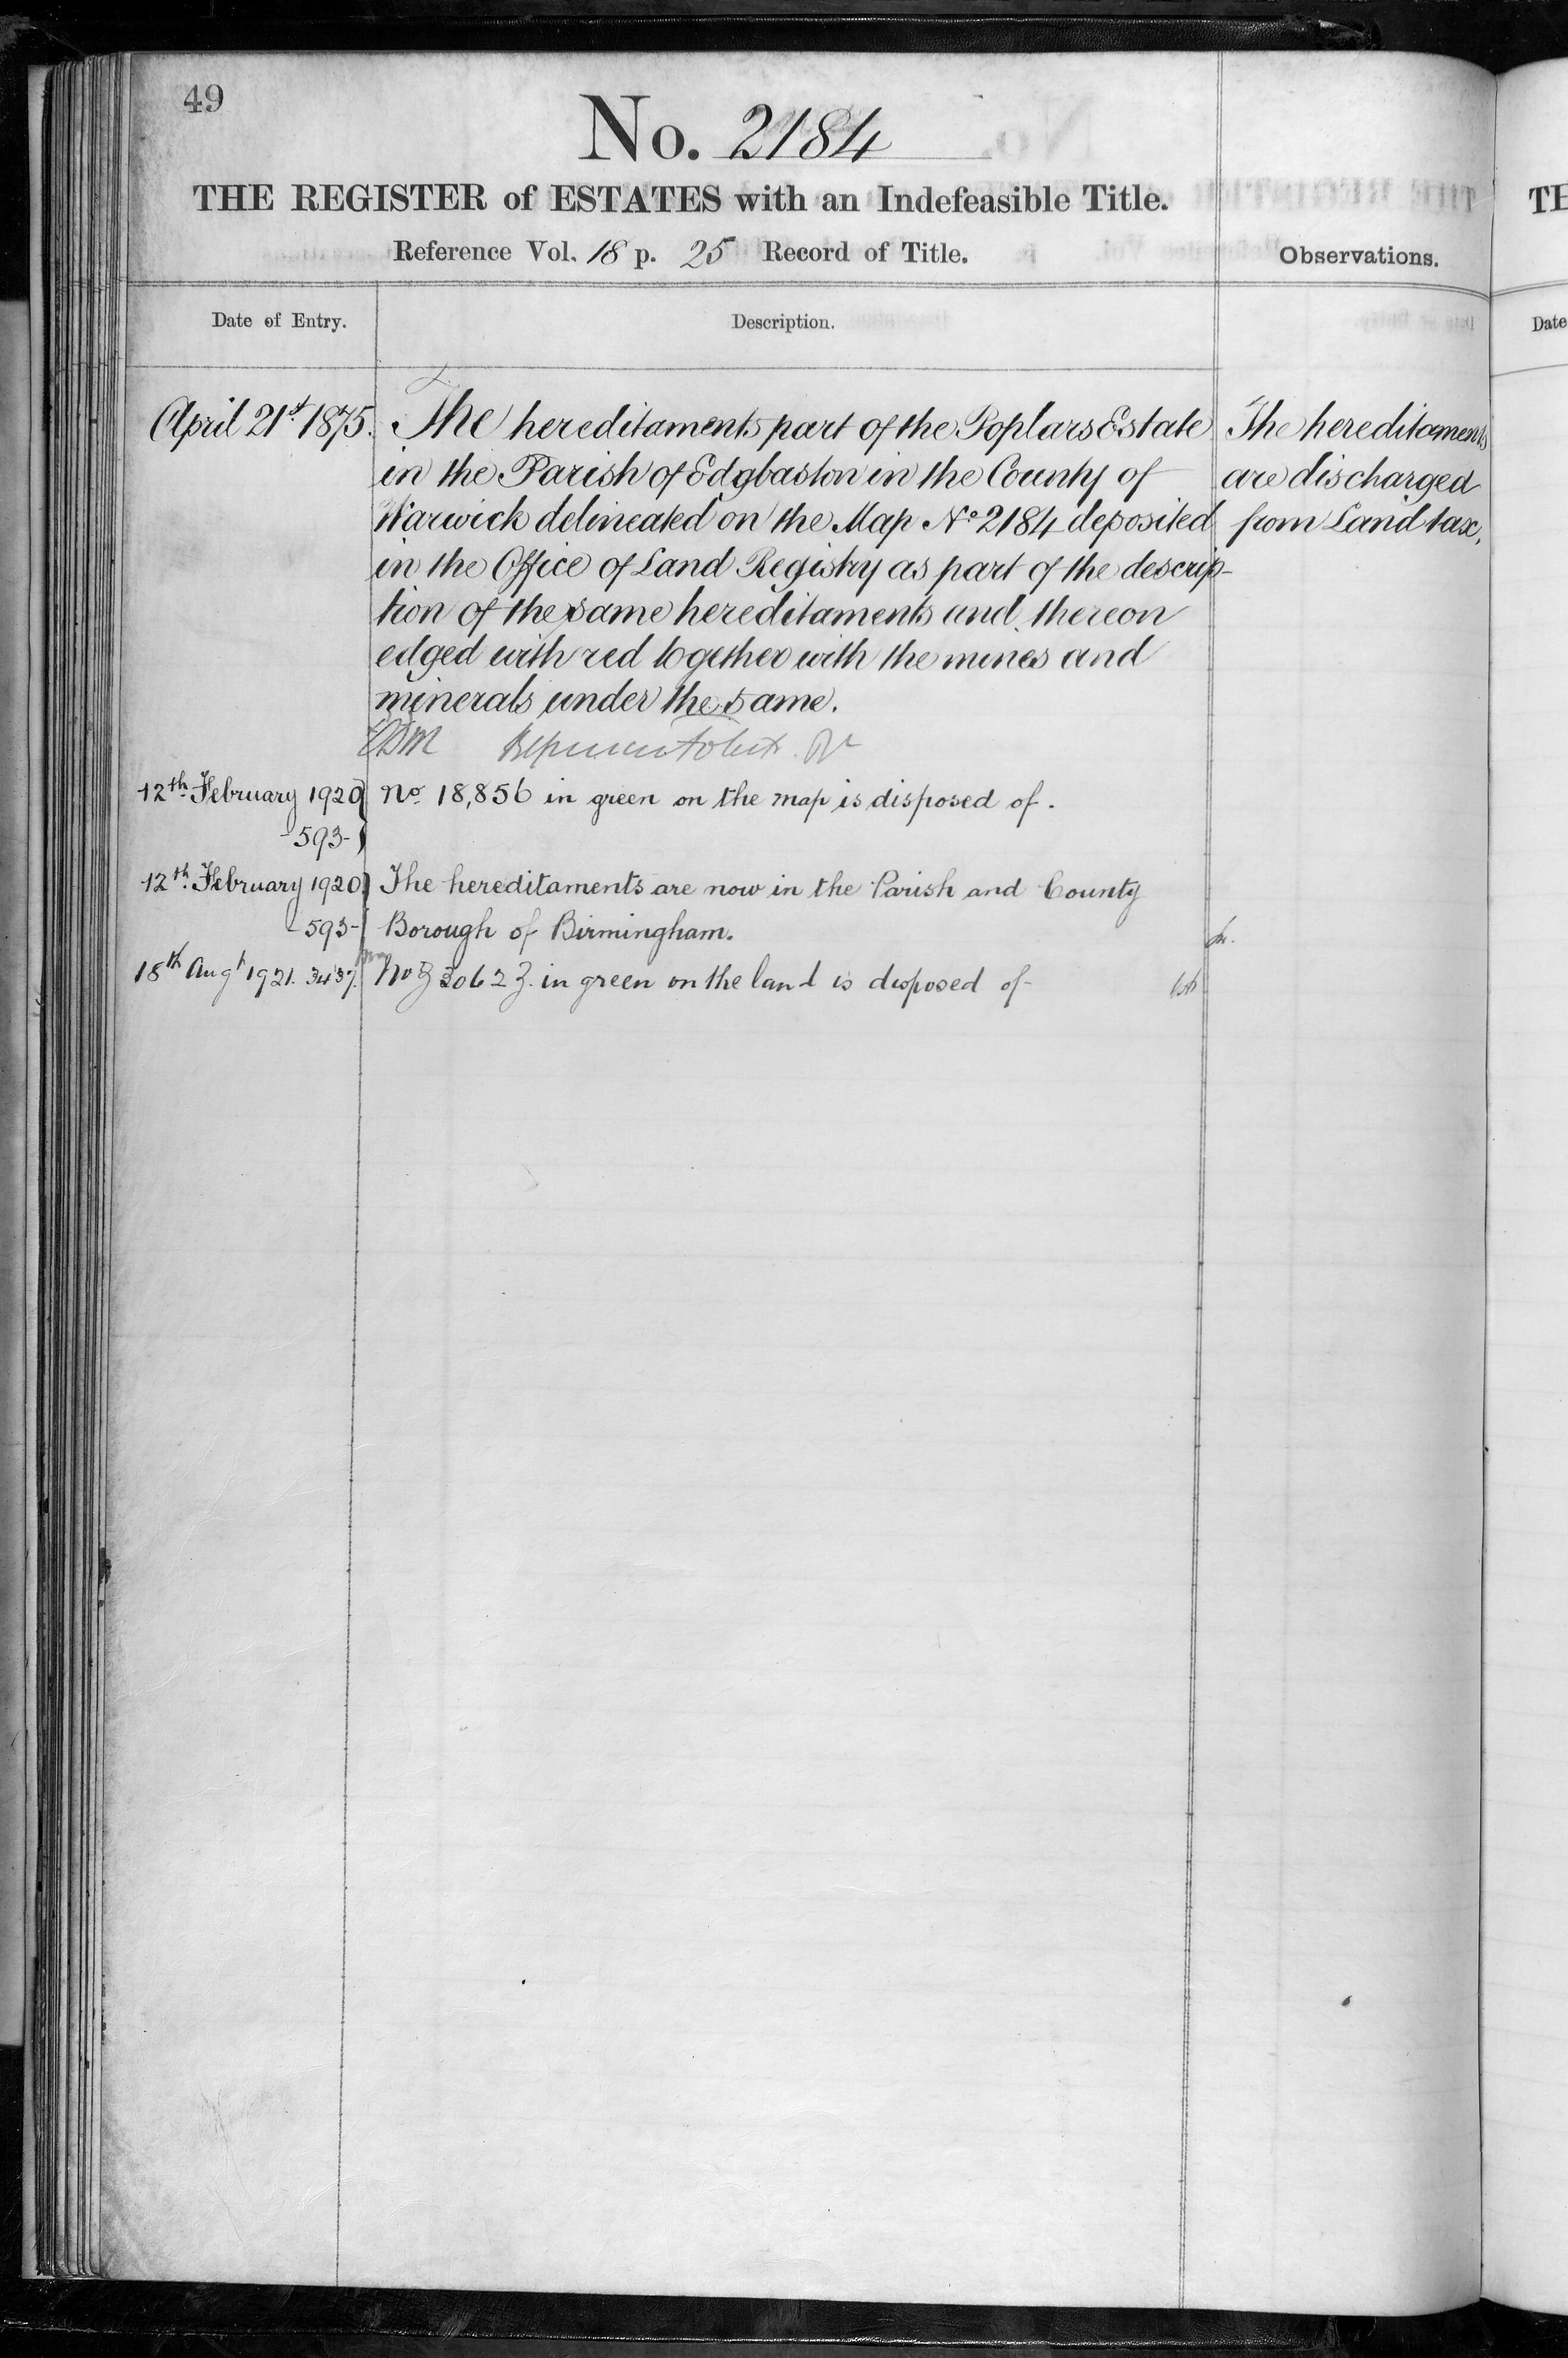 49
No. 2184
THE REGISTER of ESTATES with an Indefeasible Title.
Reference Vol. 18 p. 25 Record of Title.
Observations.
Date of Entry.
Description.
April 21st 1875.
The hereditaments part of the Poplars Estate
in the Parish of Edgbaston in the County of
Warwick delineated on the Map No 2184 deposited
in the Office of Land Registry as part of the descrip-
tion of the same hereditaments and thereon
edged with red together with the mines and
minerals under the same.
The hereditaments
are discharged
from Land tax.
12th February 1920
-593-
No 18,856 in green on the map is disposed of.
12th February 1920
-593-
The hereditaments are now in the Parish and County
Borough of Birmingham.
18th Augt 1921. 3437.
No 3062 in green on the land is disposed of-
TH
Date